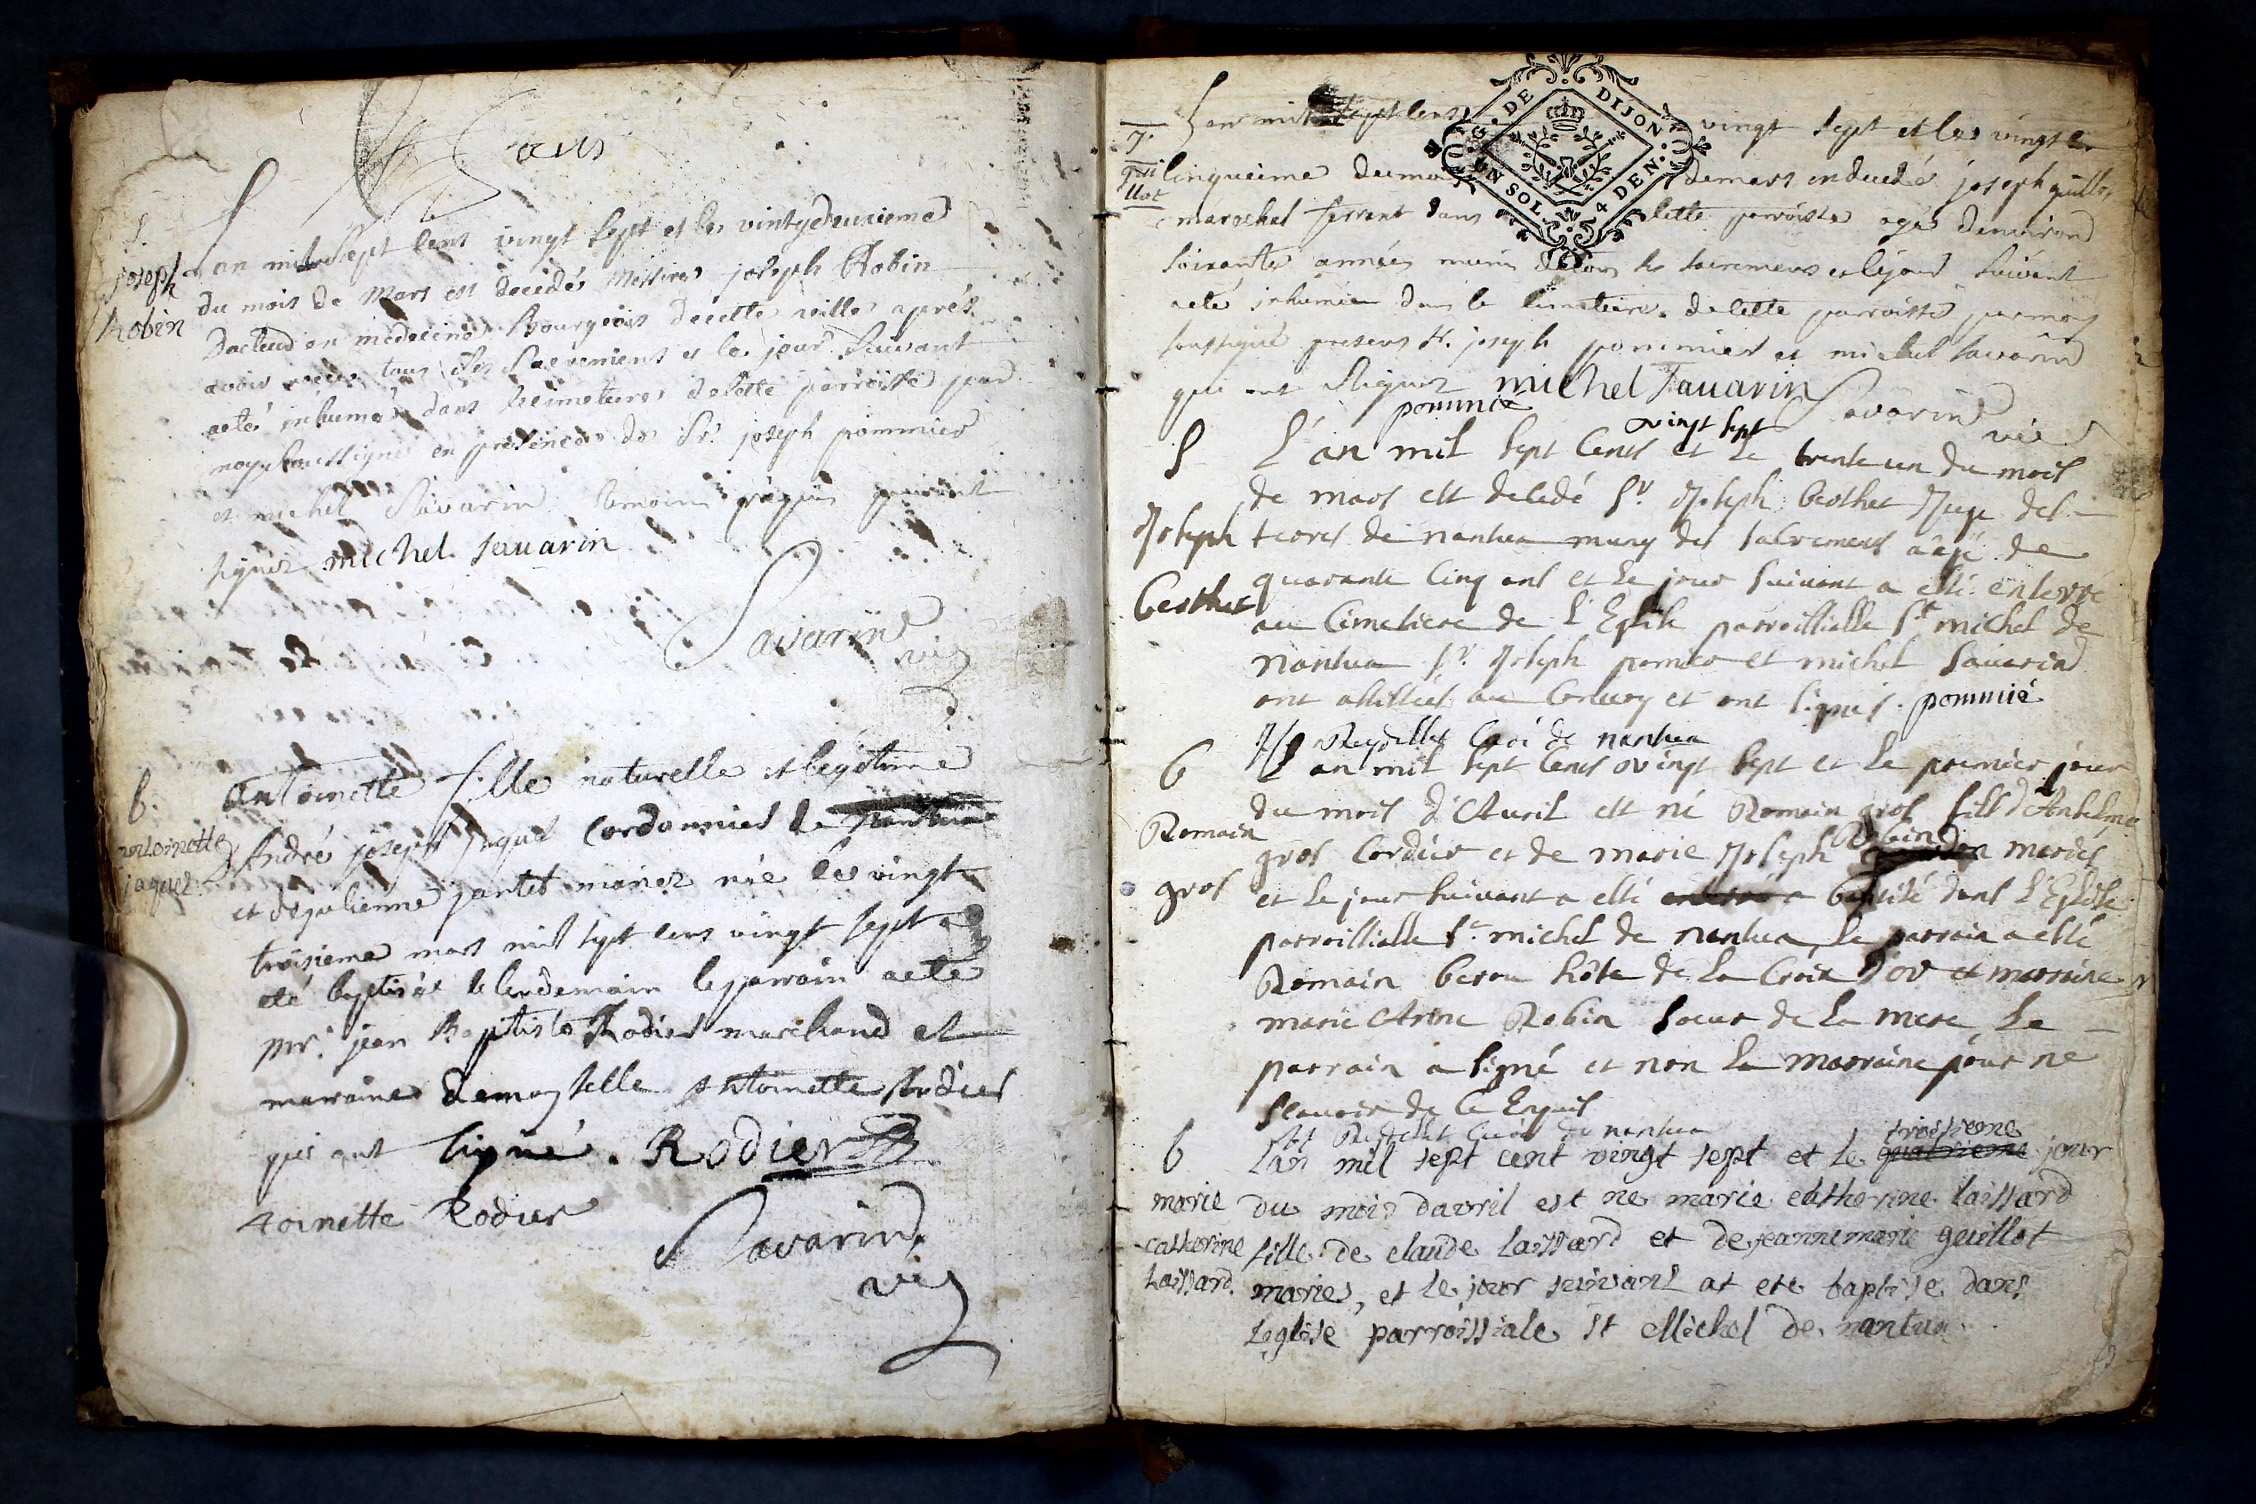 S.
Joseph
Robin
L an mil sept cens vingt sept et les vintydeuxieme
du mois de Mars est decedés Messires joseph Robin
docteur en médecine Bourgeois decette ville aprés
avoir recus tous les Sacremens et les jour suivant
aeté inhumé dans cimetieres decette parroisse par
moy soussigné en présences de Sr. joseph pommier
et michel Savarin temoins requis qui ont
signez michel sauarin
Savarin vic
b.
antoinette
jaquez
antoinette fille naturelle et legitime
d'André joseph jaquet Cordonnier de nantua
et dejulienne jantet mariez née les vingt
troisieme mars mil sept cens vingt sept a
eté baptisée lelendemain leparrain aeté
mr. jean Baptiste Rodier marchand et
marraine demoyselle antoinette Rodier
qui ont signé. Rodier
toinette Rodier
Savarin
vic
G. DE DIJON
UN SOL 4 DEN.
7.
gui
llot
L an mil sept cens vingt sept et les vingt
cinquieme dumois demars indecedé joseph guillot
mareschal ferrant dans cette parroisse agés denviron
soixantes années munis detous les sacremens et lejour suivant
aeté inhumé dans le cimetiere decette parroisse parmoy
soussigné presens Sr. joseph pommier et michel savarin
qui ont signez michel Sauarin
pommié Savarin vic
S
Joseph
Berthet
vingt sept
L'an mil sept Cents et le trente un du mois
de mars est decedé Sr. Joseph Berthet Juge des
terres de nantua muny des sacremens aagé de
quarante cinq ans et le jour suivant a esté enterré
au Cimetiere de l'Eglise parroissialle St. michel de
nantua Sr. Joseph pomier et michel Sauarin
ont assistés au Convoy et ont signés. pommié
Reydellet Curé de nantua
b
Romain
gros
L'an mil sept Cents vingt sept et le premier jour
du mois d'Avril est né Romain gros fils d'Anthelme
gros Cordier et de marie Joseph Robin mariés
et le jour suivant a esté baptisé dans l'Eglise
parroissialle St. michel de nantua, le parrain a esté
Romain hôte de la Croix d'or et marraine
marie Robin soeur de la mere, le
parrain a signé et non la marraine pour ne
scauoir de ce Enquis
Reydellet Curé de nantua
b
marie
catherine
laissard.
troisieme
L'an mil sept cent vingt sept et le quatrieme jour
du mois davril est ne marie catherine laissard
fille de claude laissard et de jeanne marie guillot
maries, et le jour suivant at ete baptise dans
leglise parroissiale St Michel de nantua.